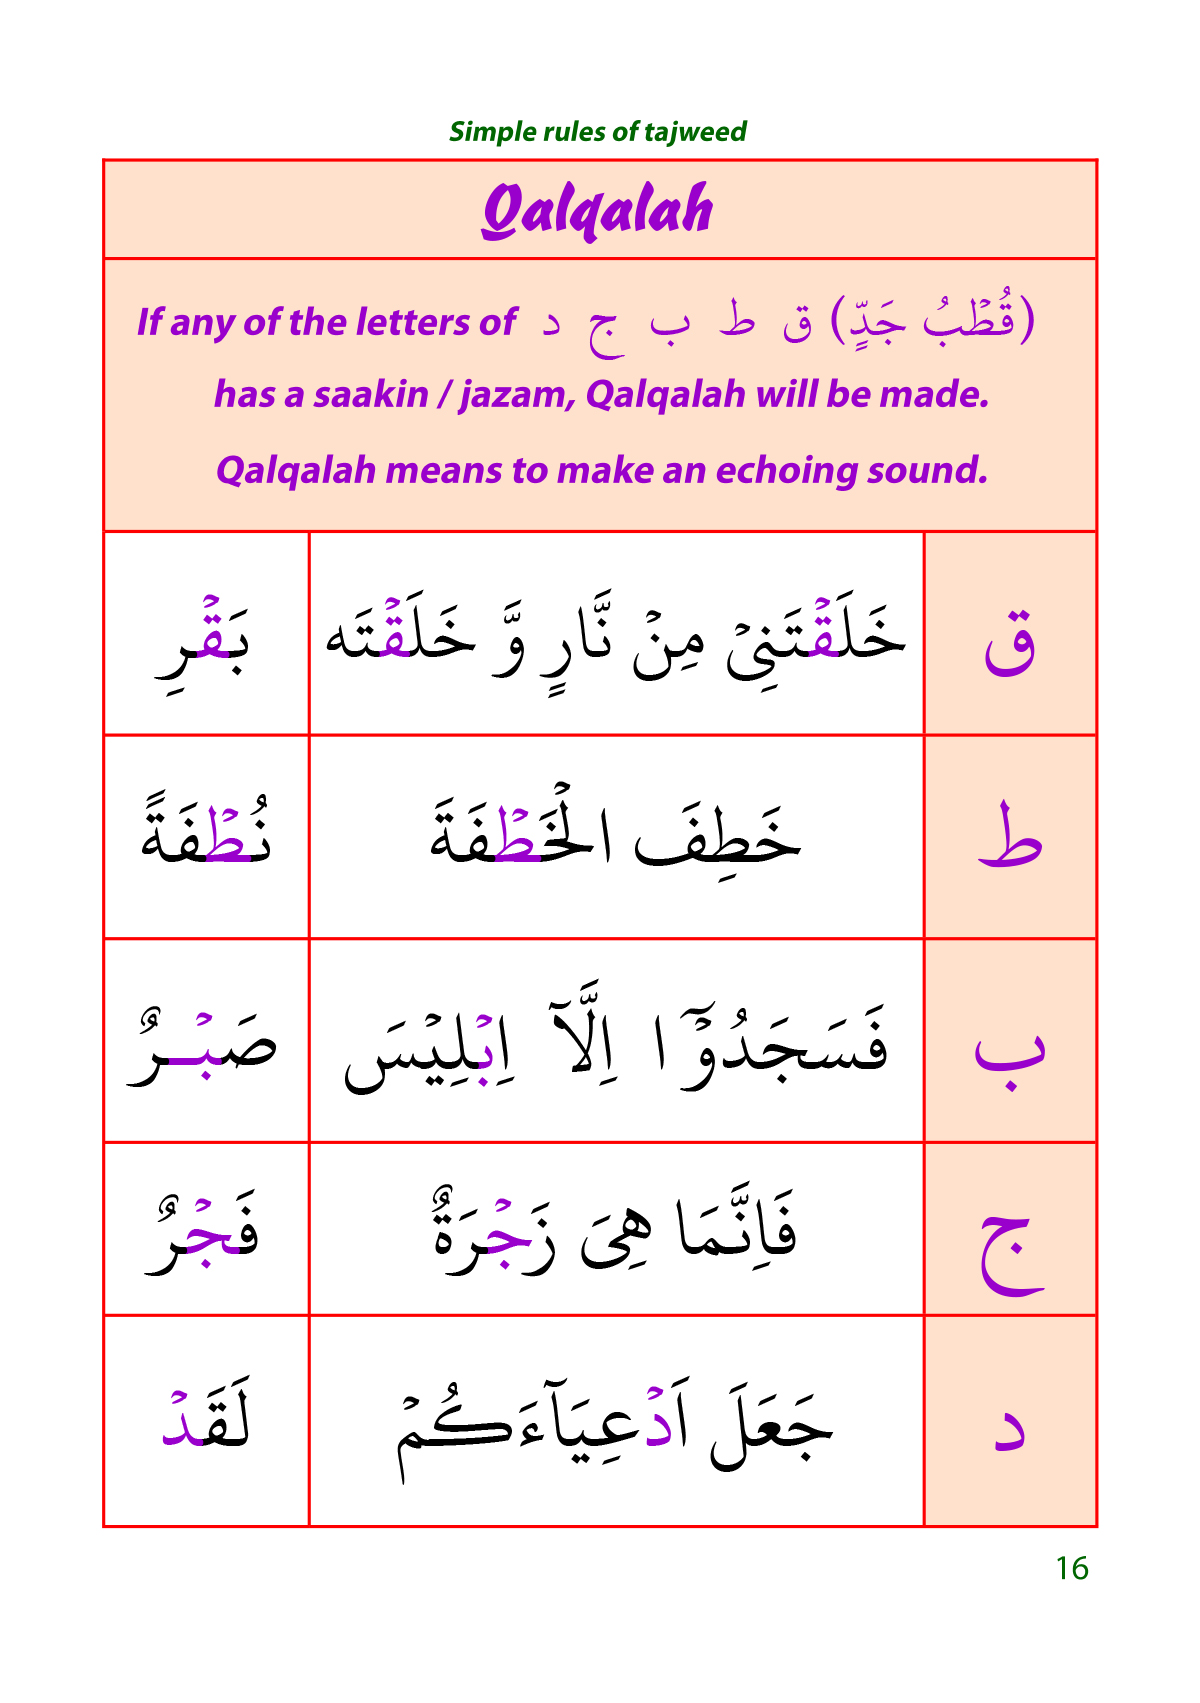 Simple rules of tajweed
Qalqalah
If any of the letters of (قُطْبُ جَدٍّ) ق ط ب ج د
has a saakin / jazam, Qalqalah will be made.
Qalqalah means to make an echoing sound.
ق
خَلَقْتَنِىْ مِنْ نَّارٍ وَّ خَلَقْتَه
بَقْرِ
ط
خَطِفَ الْخَطْفَةَ
نُطْفَةً
ب
فَسَجَدُوْٓا اِلَّآ اِبْلِيْسَ
صَبْرٌ
ج
فَاِنَّمَا هِىَ زَجْرَةٌ
فَجْرٌ
د
جَعَلَ اَدْعِيَآءَكُمْ
لَقَدْ
16